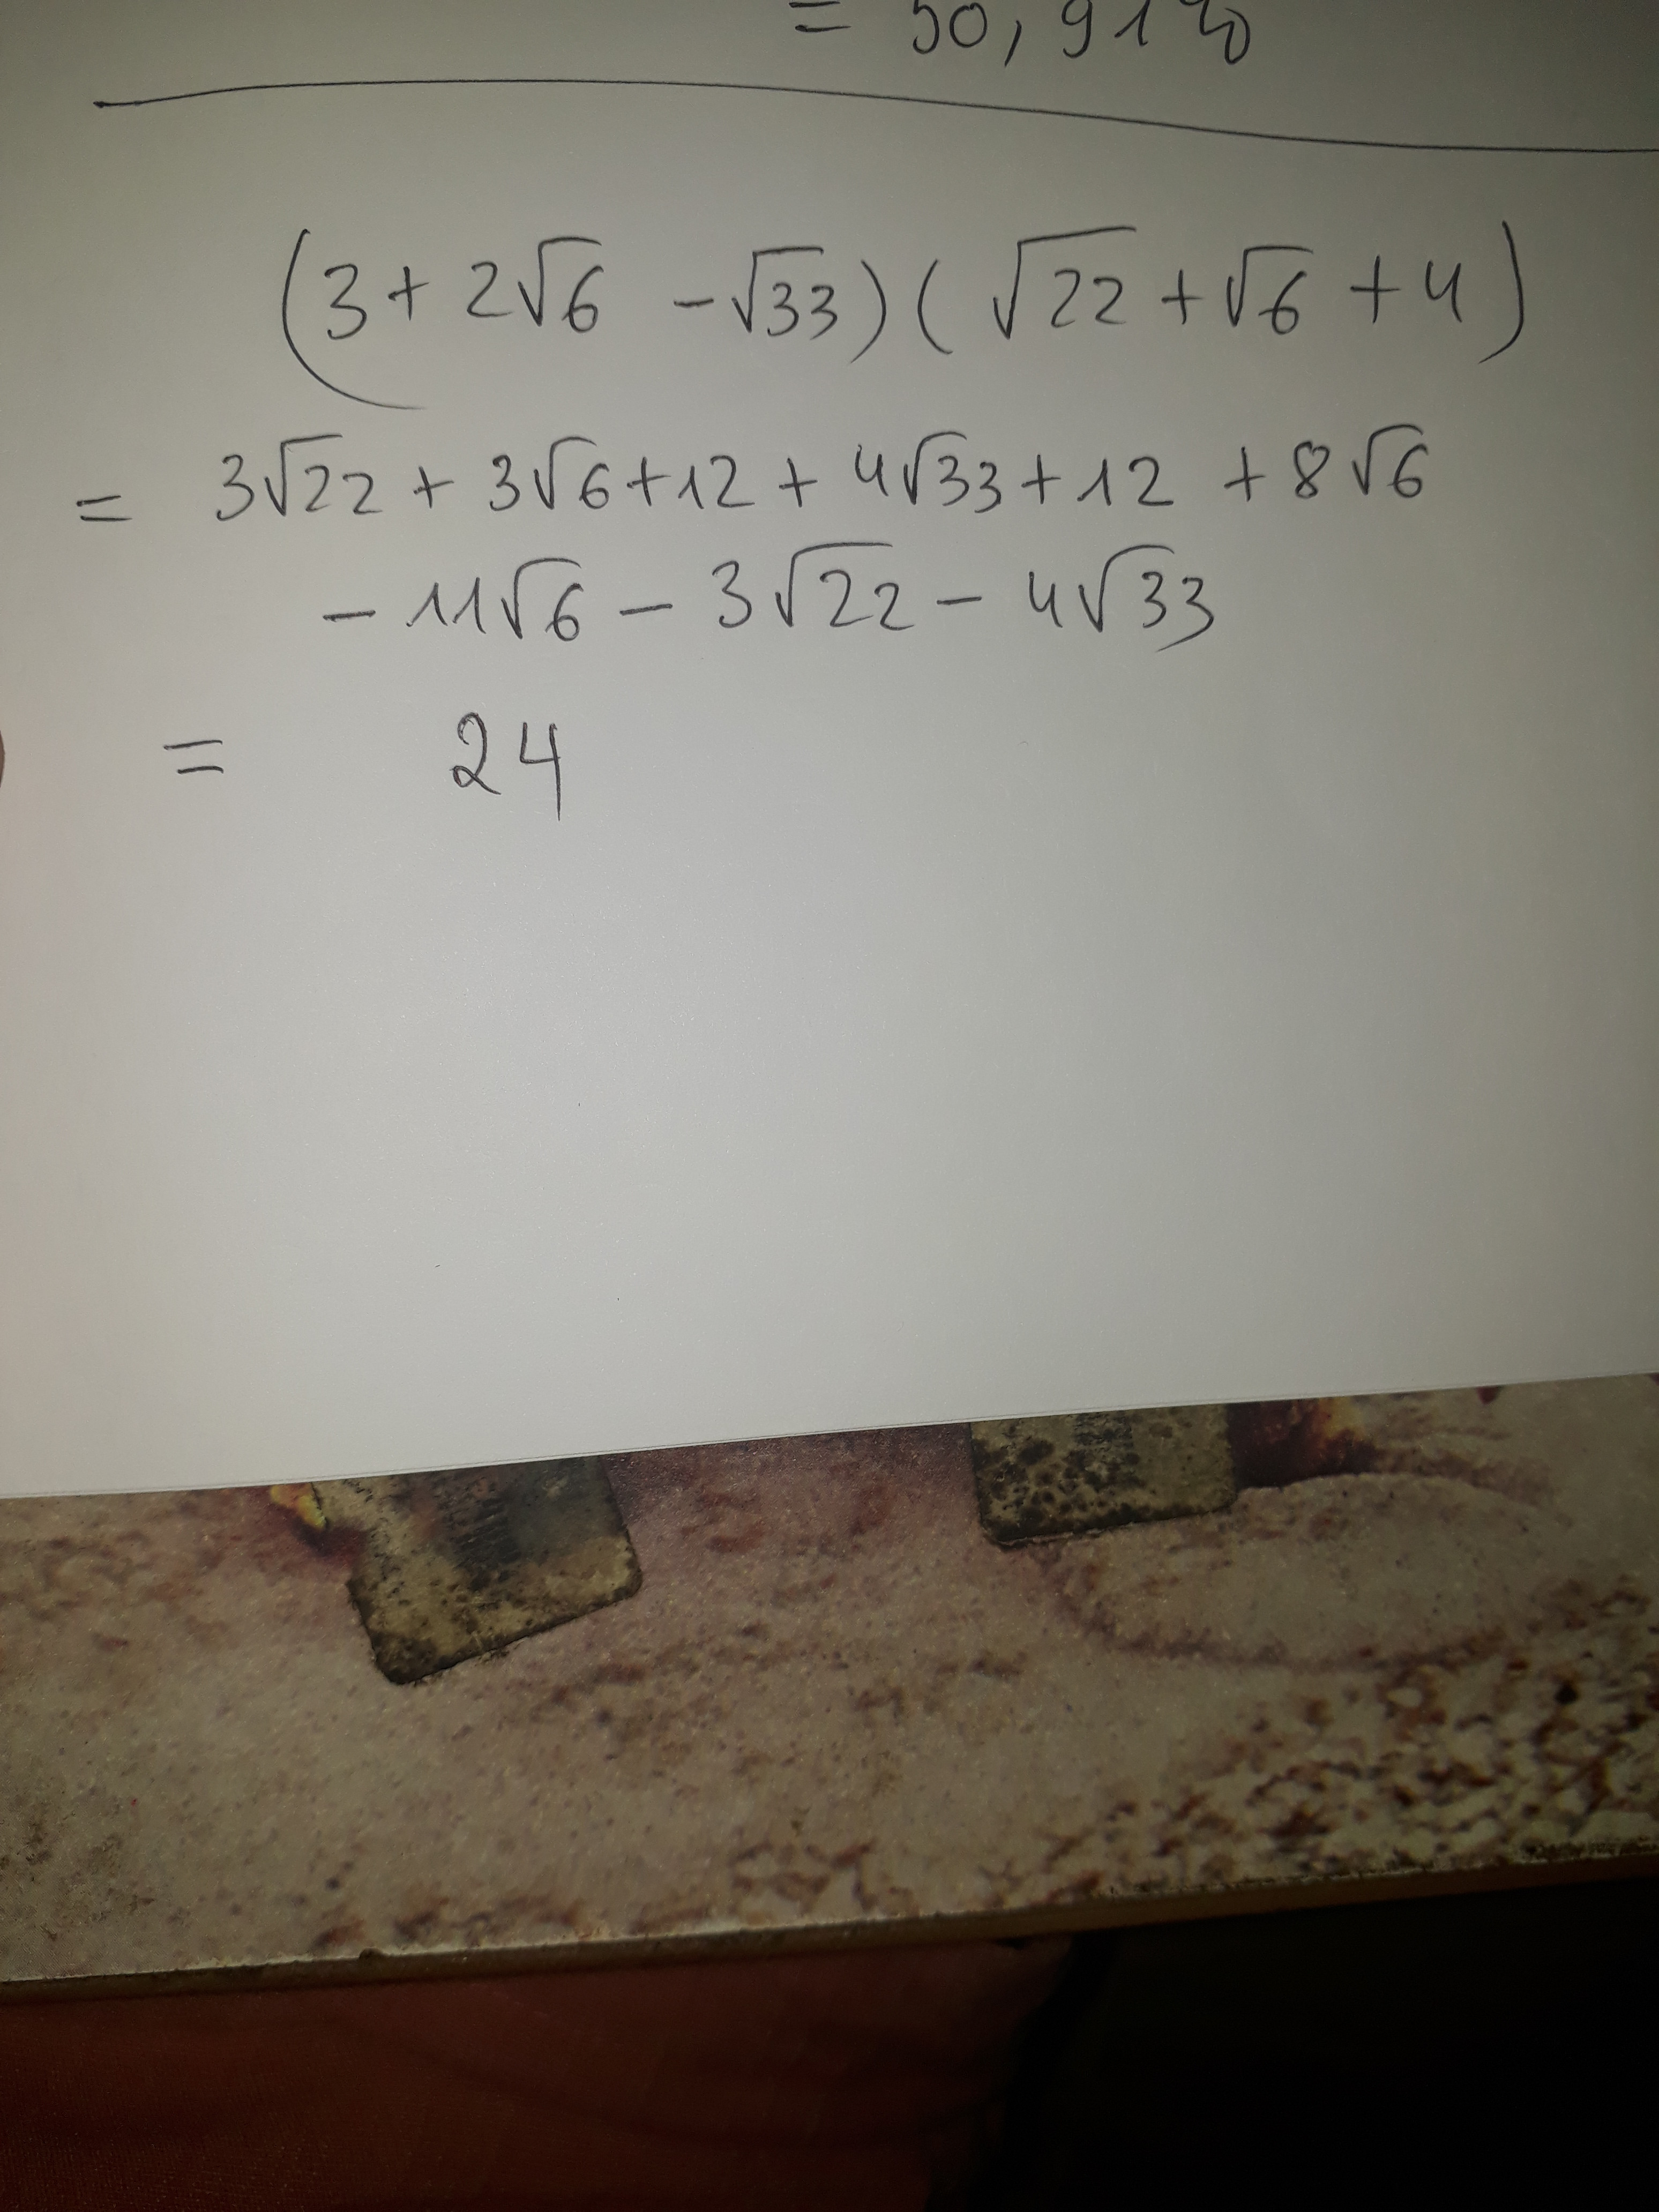 = 50,91%
(3 + 2√6 - √33)(√22 + √6 + 4)
= 3√22 + 3√6 + 12 + 4√33 + 12 + 8√6
- 11√6 - 3√22 - 4√33
= 24